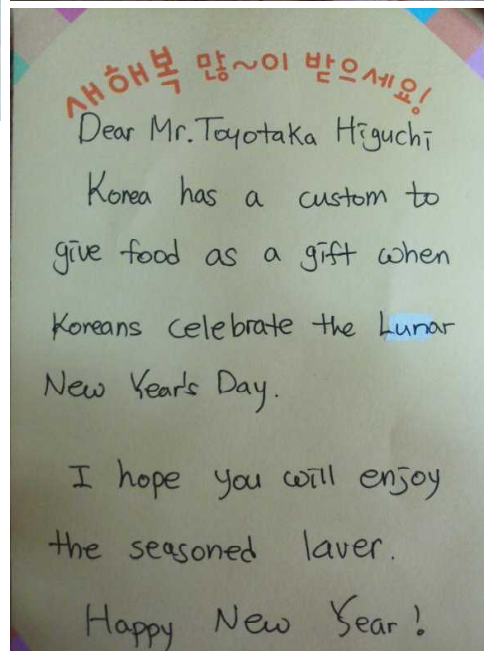 새해복 많~이 받으세요!
Dear Mr. Toyotaka Higuchi
Korea has a custom to
give food as a gift when
Koreans celebrate the Lunar
New Year's Day.
I hope you will enjoy
the seasoned laver.
Happy New Year!